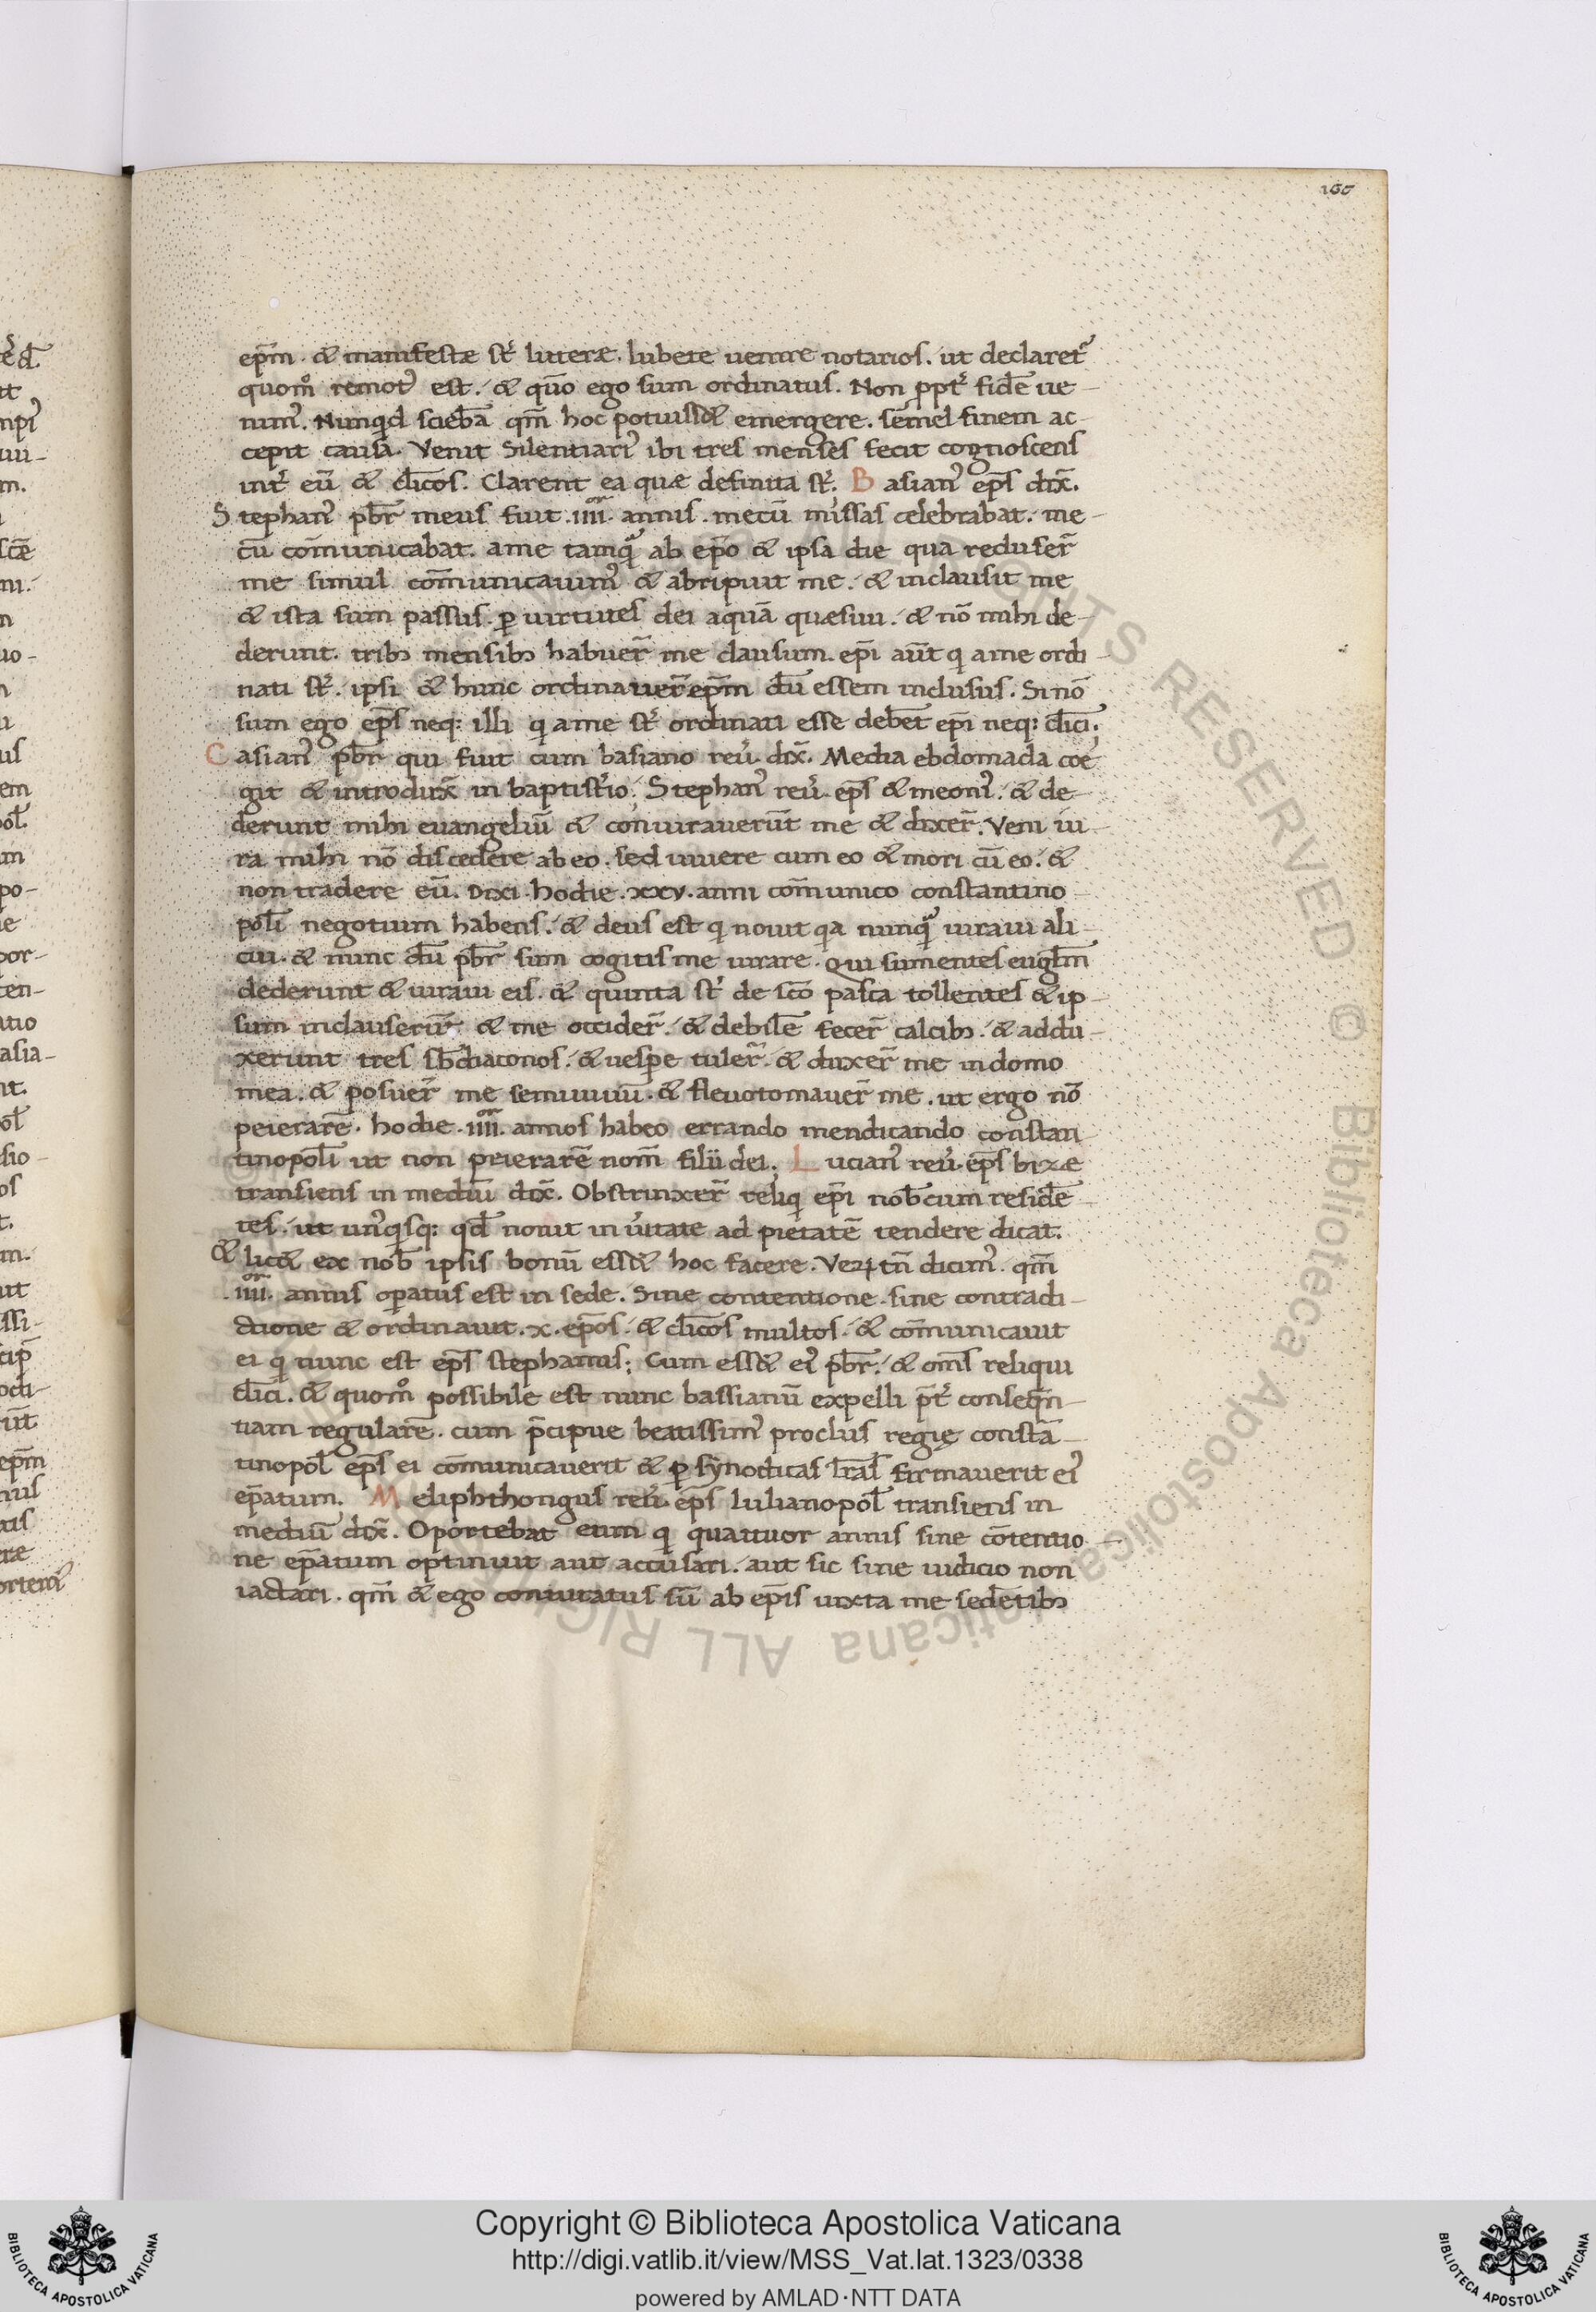 160
ep̄m. & manifestæ st̄ litteræ. Iubete uenire notarios. ut declaret᷒
quom̊ remot᷒ est. & quō ego sum ordinatus. Non ppt᷒ fidē ue-
nim᷒. Nunqd sciebā qm̄ hoc potuiss& emergere. semel finem ac-
cepit causa. Venit Silentiari᷒ ibi tres menses fecit cognoscens
int᷒ eū & cl̄icos. Clarent ea quæ definita st̄. Basian᷒ ep̄s dix̄.
Stephan᷒ pb̄r meus fuit .iiii. annis. mecū missas celebrabat. me-
cū com̄unicabat. ame tamquā ab ep̄o & ipsa die qua reduser̄
me simul com̄unicauim᷒ & abripuit me. & inclausit me
& ista sum passus. ꝑ uirtutes dei aquā quæsiui. & nō mihi de-
derunt. trib; mensib; habuer̄ me clausum. ep̄i aūt q ame ordi-
nati st̄. ipsi & hunc ordinauer̄ ep̄m dū essem inclusus. Si nō
sum ego ep̄s neq: illi q ame st̄ ordinati esse debēt ep̄i neq: cl̄ici;
Casian᷒ pb̄r qui fuit cum basiano reū. dix̄. Media ebdomada coe-
git & introdux̄ in baptist̄io. Stephan᷒ reū. ep̄s & meon᷒. & de-
derunt mihi euangeliū & coniurauerūt me & dixer̄. Veni iu-
ra mihi nō discedere ab eo. sed uiuere cum eo & mori cū eo. &
non tradere eū. Dixi. hodie. xxv. anni com̄unico constantino-
pol̄i negotium habens. & deus est q nouit qa nunquā iuraui ali-
cui. & nunc dū pb̄r sum cogitis me iurare. Qui sumentes eugl̄m
dederunt & iuraui eis. & quinta st̄ de sc̄o pasca tollentes & ip-
sum inclauserūt & me occider̄. & debilē fecer̄ calcib;. & addu-
xerunt tres sb̄diaconos. & uesꝑe tuler̄. & duxer̄ me in domo
mea. & posuer̄ me semiuiuū. & fleuotomauer̄ me. ut ergo nō
peierarē. hodie .iiii. annos habeo errando mendicando constan-
tinopol̄i ut non peierarē nom̄ filii dei. Lucian᷒ reū. ep̄s bizæ
transiens in mediū dix̄. Obstrinxer̄ reliqi ep̄i nob̄cum residē-
tes. ut un᷒qisq: qd̄ nouit in ū̄itate ad pietatē tendere dicat.
& lic& ex nob̄ ipsis bonū ess& hoc facere. Veꝝtn̄ dicim᷒. qm̄
.iiii. annis oꝑatus est in sede. Sine contentione. sine contradi-
ctione & ordinauit. x. ep̄os. & cl̄icos multos. & com̄unicauit
ei q nunc est ep̄s stephanus; Cum ess& ei᷒ pb̄r. & om̄s reliqui
cl̄ici. & quom̊ possibile est nunc bassianū expelli p̄t᷒ conseqn̄-
tiam regularē. cum p̄cipue beatissim᷒ proclus regię constā-
tinopol̄ ep̄s ei com̄unicauerit & ꝑ synodicas lr̄as firmauerit ei᷒
ep̄atum. Meliphthongus reū. ep̄s Iulianopol̄ transiens in
mediū dix̄. Oportebat eum q quattuor annis sine cōtentio-
ne ep̄atum optinuit aut accusari. aut sic sine iudicio non
iactari. qm̄ & ego coniuratus sū ab ep̄is iuxta me sedētib;
Copyright © Biblioteca Apostolica Vaticana
http://digi.vatlib.it/view/MSS_Vat.lat.1323/0338
powered by AMLAD·NTT DATA